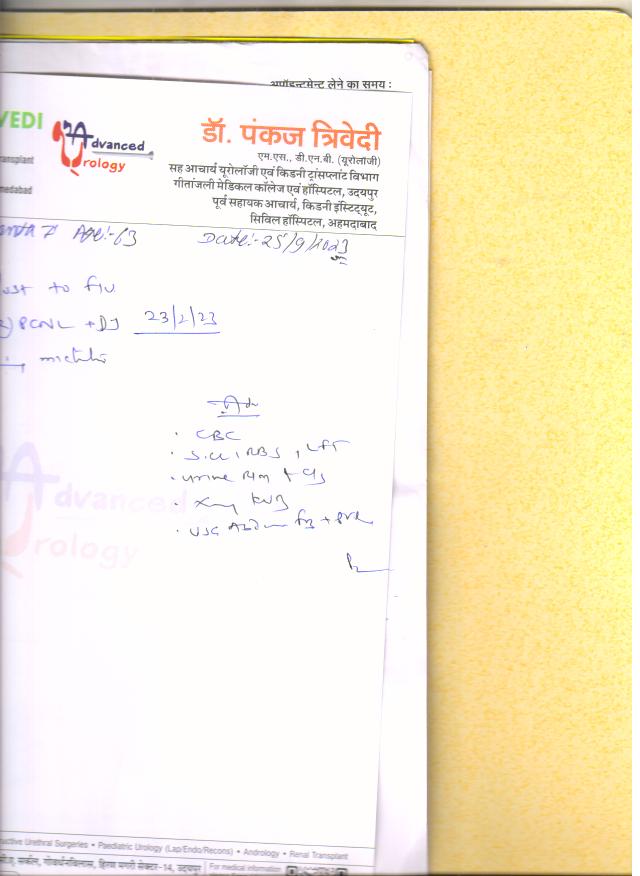 अपॉइन्टमेन्ट लेने का समय :
VEDI
Advanced
Urology
ransplant
medabad
डॉ. पंकज त्रिवेदी
एम.एस., डी.एन.बी. (यूरोलॉजी)
सह आचार्य यूरोलॉजी एवं किडनी ट्रांसप्लांट विभाग
गीतांजली मेडिकल कॉलेज एवं हॉस्पिटल, उदयपुर
पूर्व सहायक आचार्य, किडनी इंस्टिट्यूट,
सिविल हॉस्पिटल, अहमदाबाद
Age:-63 Date:-25/9/2023
to f/u
PCNL + DJ 23/2/23
Adv
• CBC
• S.Cr, RBS, LFT
• Urine R/m + C/s
• Xray KUB
• USG Abdomen + PVR
Advanced
Urology
uctive Urethral Surgeries • Paediatric Urology (Lap/Endo/Recons) • Andrology • Renal Transplant
गोवर्धनविलास, हिरण मगरी सेक्टर-14, उदयपुर For medical information